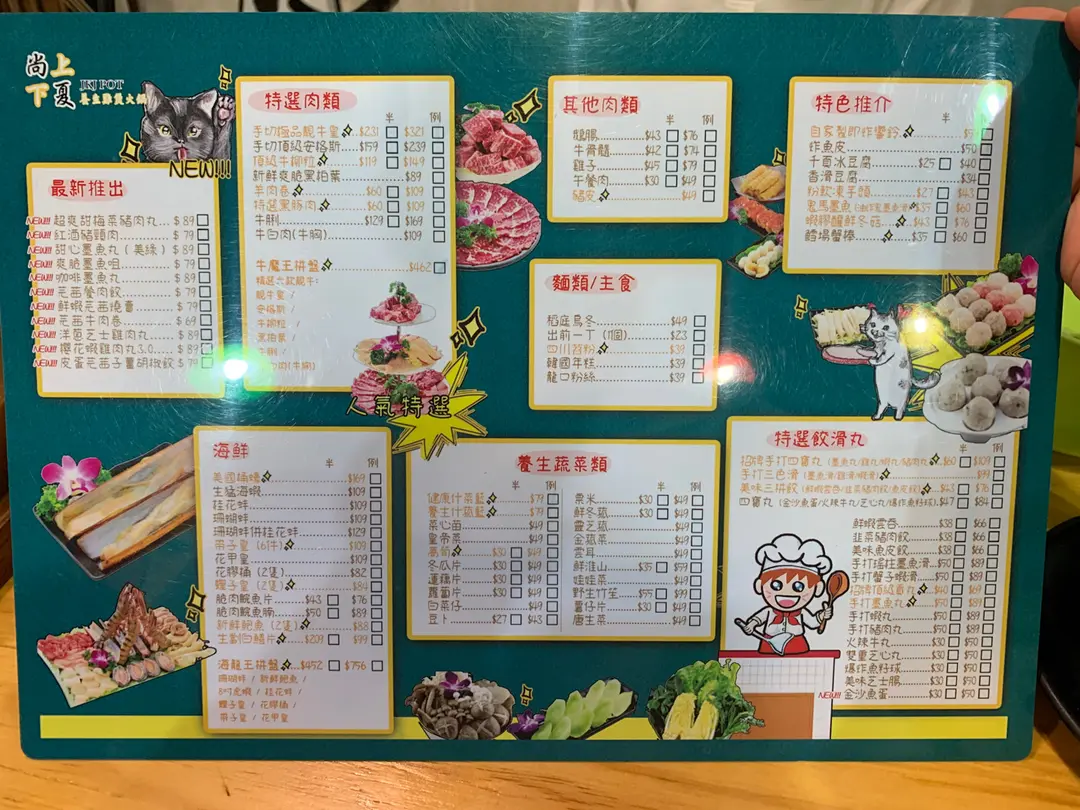 尚上
下夏
JKJ POT
養生雞煲火鍋
NEW!!!
最新推出
NEW!!! 超爽甜梅菜豬肉丸 $89
NEW!!! 紅酒豬頸肉 $79
NEW!!! 甜心墨魚丸(美綠) $89
NEW!!! 爽脆墨魚咀 $79
NEW!!! 咖啡墨魚丸 $89
NEW!!! 芫茜餐肉餃 $79
NEW!!! 鮮蝦芫茜燒賣 $79
NEW!!! 芫茜牛肉卷 $69
NEW!!! 洋蔥芝士雞肉丸 $89
NEW!!! 櫻花蝦雞肉丸3.0 $89
NEW!!! 皮蛋芫茜子薑胡椒餃 $79
特選肉類
半 例
手切極品靚牛皇 $231 $321
手切頂級安格斯 $159 $239
頂級牛柳粒 $119 $149
新鮮爽脆黑柏葉 $89
羊肉卷 $60 $109
特選黑豚肉 $60 $109
牛脷 $129 $169
牛白肉(牛胸) $109
牛魔王拼盤 $462
精選六款靚牛:
靚牛皇 /
安格斯 /
牛柳粒 /
黑柏葉 /
牛脷 /
人氣特選
其他肉類
半 例
腰腸 $43 $76
牛骨髓 $42 $74
雞子 $45 $79
午餐肉 $30 $49
豬皮 $49
麵類/主食
稻庭烏冬 $49
出前一丁(1個) $23
四川苕粉 $39
韓國年糕 $39
龍口粉絲 $39
特色推介
半 例
自家製即炸響鈴
炸魚皮 $50
千面冰豆腐 $25 $40
香滑豆腐 $34
粉飲凍芋頭 $27 $43
$35 $60
蝦膠釀鮮冬菇 $43 $76
鱈場蟹棒 $35 $60
海鮮
半 例
美國桶蠔 $169
生猛海蝦 $109
桂花蚌 $109
珊瑚蚌 $109
珊瑚蚌併桂花蚌 $129
帶子皇(6件) $109
花甲皇 $109
花膠桶(2隻) $82
蟶子皇(2隻) $84
脆肉鯇魚片 $43 $76
脆肉鯇魚腩 $50 $89
新鮮鮑魚(2隻) $88
生劏白鱔片 $209 $99
海龍王拼盤 $452 $756
珊瑚蚌 / 新鮮鮑魚 /
8吋虎蝦 / 桂花蚌 /
蟶子皇 / 花膠桶 /
帶子皇 / 花甲皇
養生蔬菜類
半 例
健康什菜籃 $79
養生什菇籃 $79
菜心苗 $49
皇帝菜 $49
萵筍 $30 $49
冬瓜片 $30 $49
蓮藕片 $30 $49
蘿蔔片 $30 $49
白菜仔 $49
豆卜 $27 $43
半 例
粟米 $30 $49
鮮冬菇 $30 $49
靈芝菇 $49
金菇菜 $49
雲耳 $49
鮮淮山 $35 $59
娃娃菜 $49
野生竹笙 $55 $99
薯仔片 $30 $49
唐生菜 $49
特選餃滑丸
半 例
招牌手打四寶丸(墨魚丸/雞丸/蝦丸/豬肉丸) $60 $109
手打三色滑(墨魚滑/雞滑/蝦滑) $99
美味三拼餃(鮮蝦雲吞/韭菜豬肉餃/魚皮餃) $43 $76
四寶丸(金沙魚蛋/火辣牛丸/芝心丸/爆炸魚籽球) $47 $84
鮮蝦雲吞 $38 $66
韭菜豬肉餃 $38 $66
美味魚皮餃 $38 $66
手打瑤柱墨魚滑 $50 $89
手打蟹子蝦滑 $50 $89
招牌頂級貢丸 $40 $69
手打墨魚丸 $50 $89
手打蝦丸 $50 $89
手打豬肉丸 $50 $89
火辣牛丸 $30 $50
雙重芝心丸 $30 $50
爆炸魚籽球 $30 $50
美味芝士腸 $30 $50
NEW!!! 金沙魚蛋 $30 $50